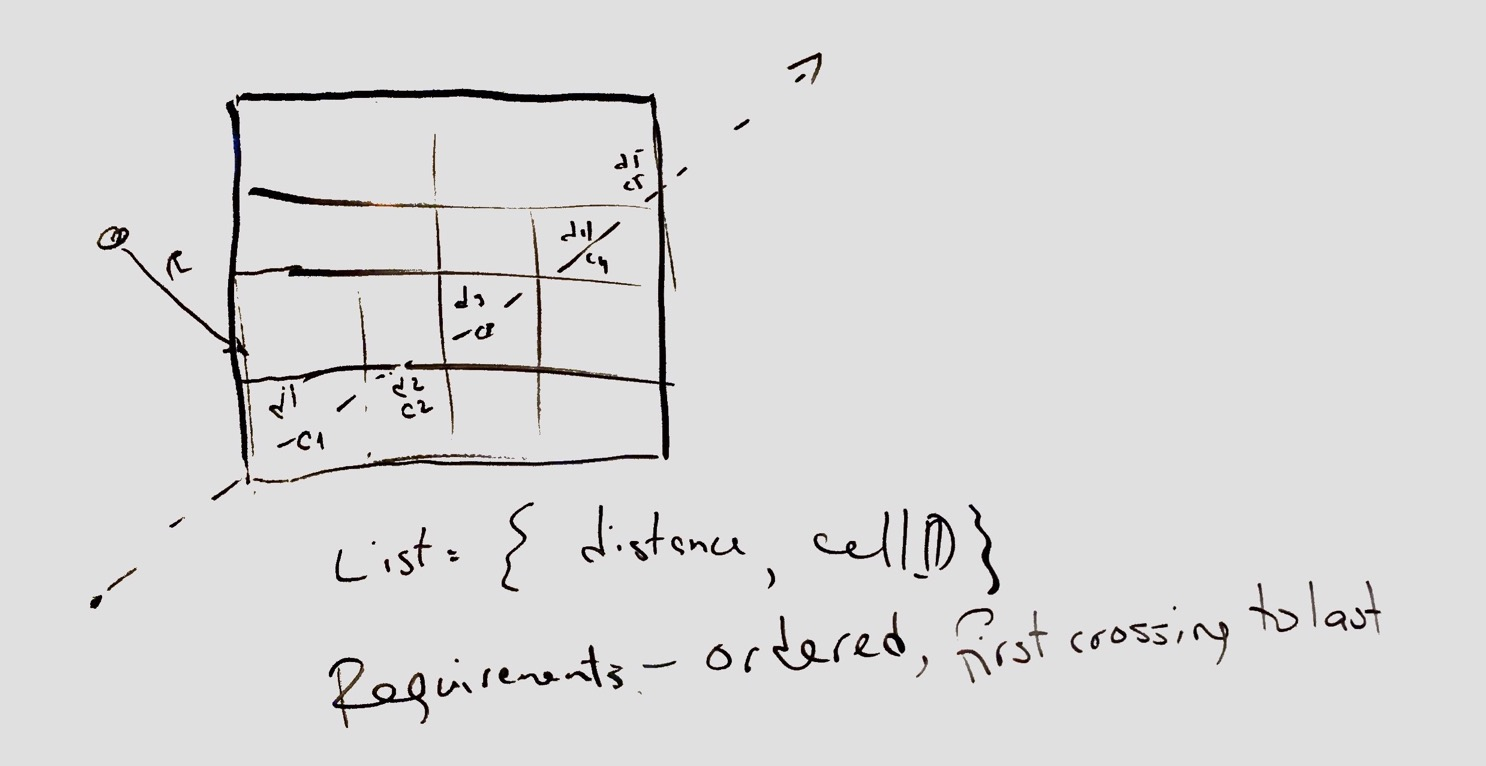 d5
c5
d4
c4
R
d3
c3
d1
c1
d2
c2
List = { distance, cellID }
Requirements - ordered, first crossing to last